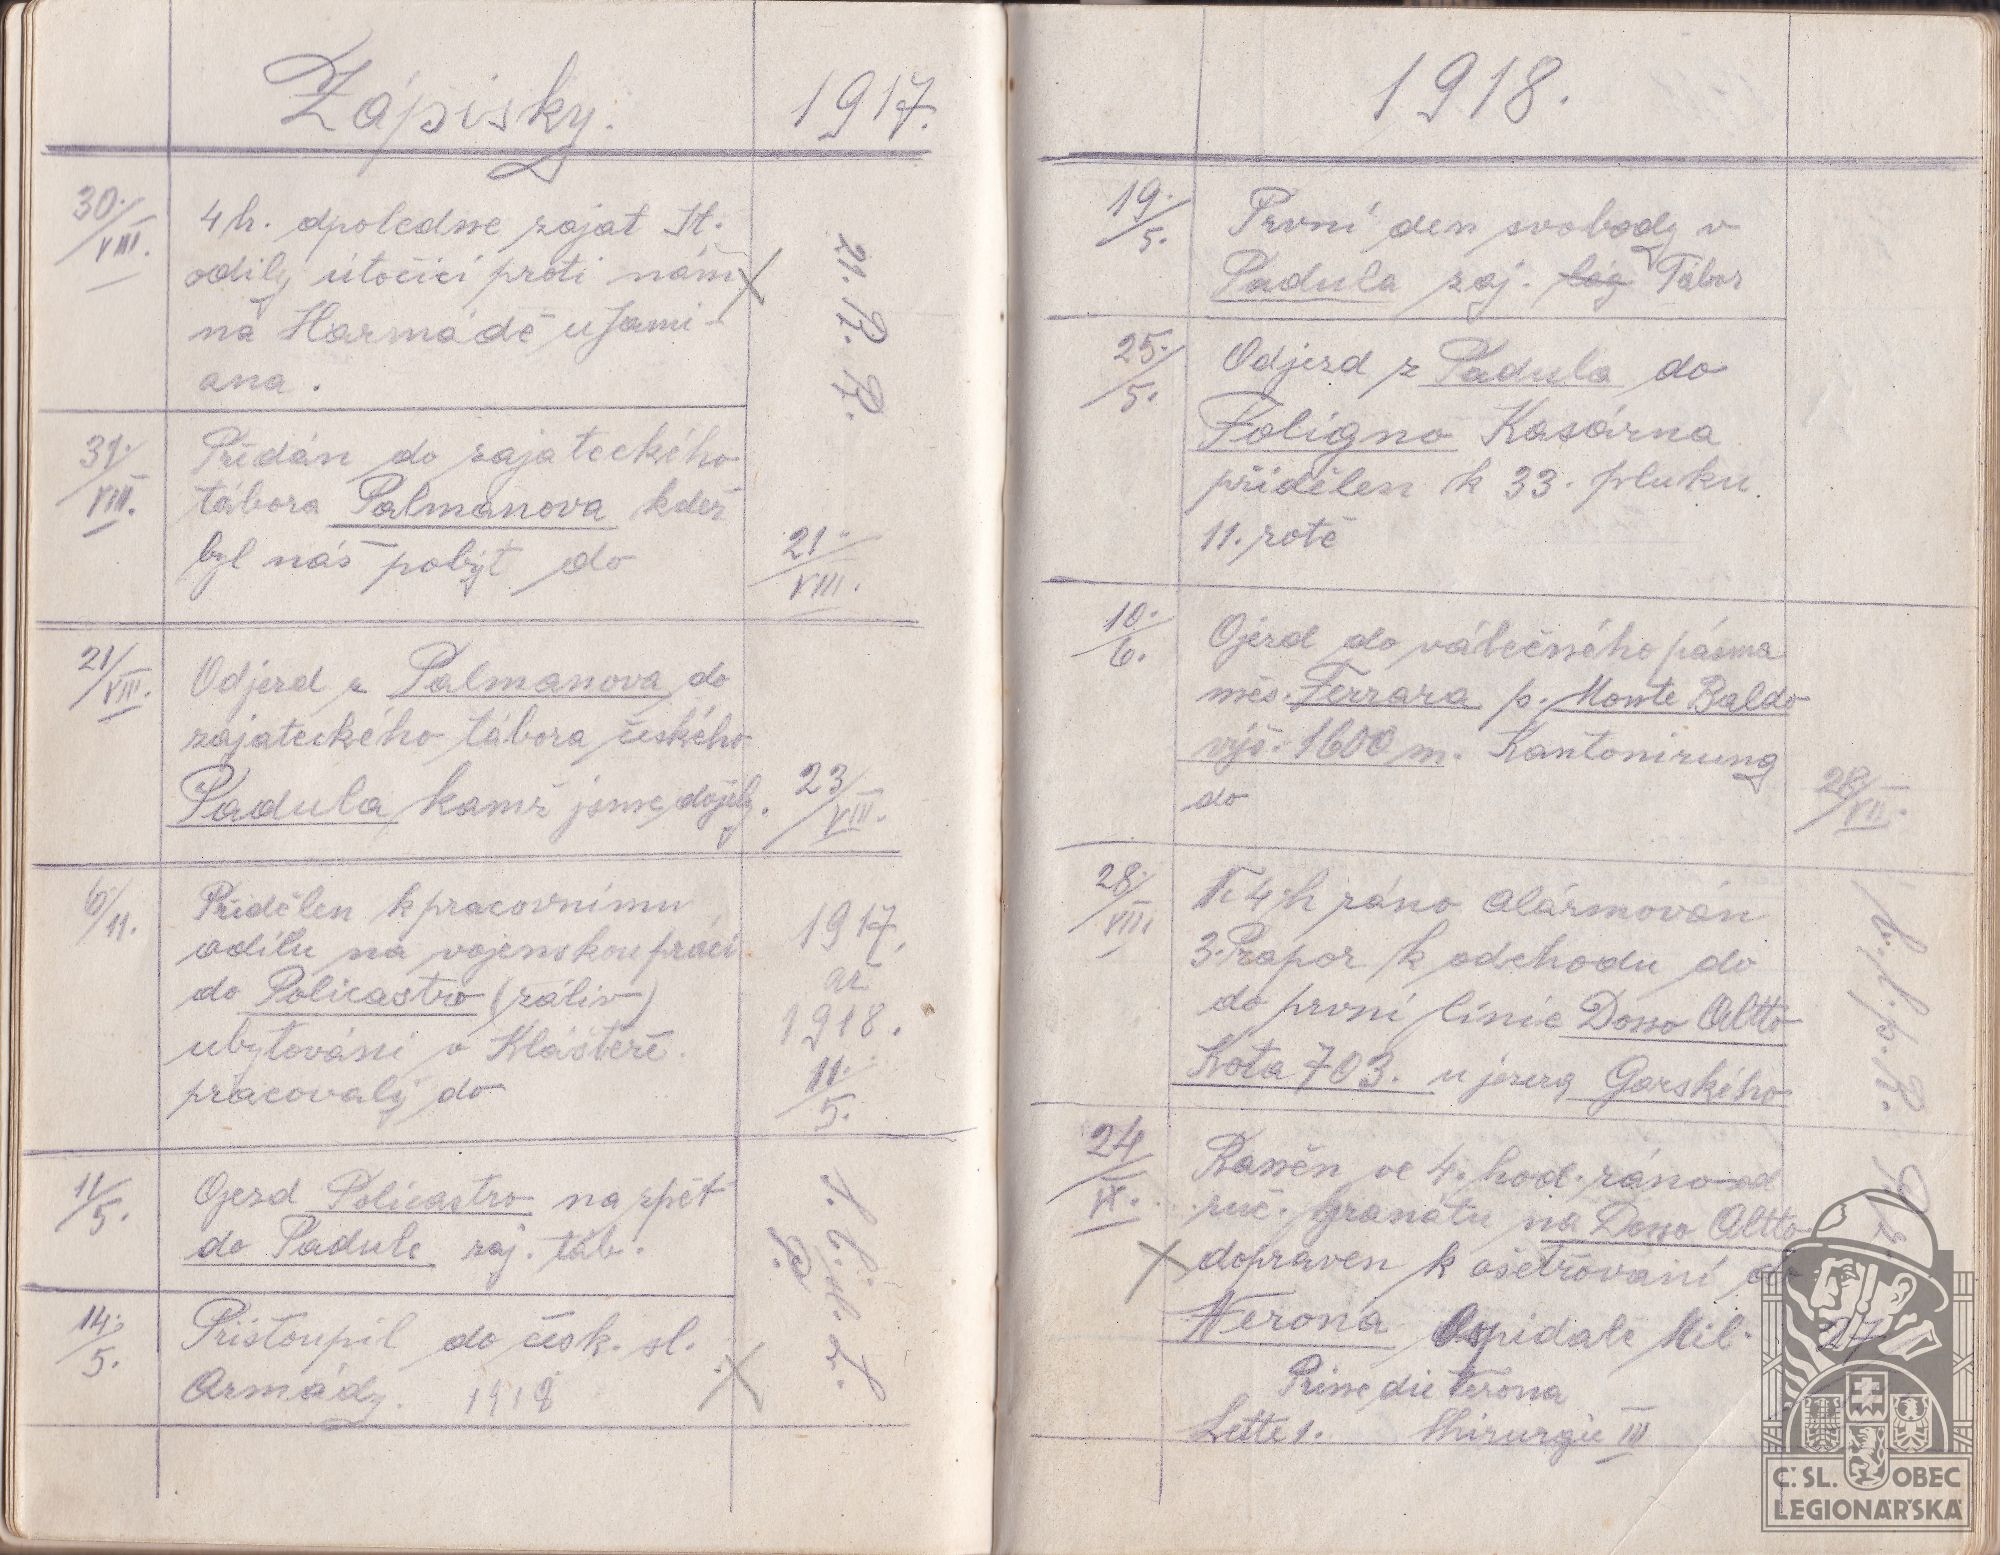 Zápisky. 1917.
30./VIII. 4 h. dpoledne zajat It.
odíly útočící proti nám
na Harmádě u Jami-
ana.
21. P. P.
31./VIII. Předán do zajateckého
tábora Palmanova kdež
byl náš pobyt do 21./VIII.
21/VIII. Odjezd z Palmanova do
zajateckého tábora českého
Padula kamž jsme dojely. 23/VIII.
6/11. Přidělen k pracovnímu
odílu na vojenskou práci
do Policastro (záliv)
ubytováni v Klášteře.
pracovalý do
1917,
až
1918.
11./5.
11/5. Ojezd Policastro na zpět
do Padule zaj. táb.
14./5. Přistoupil do česk. sl.
Armády. 1918
1918.
19./5. První den svobody v
Padula zaj. Tábor
25./5. Odjezd z Padula do
Foligno Kasárna
přidělen k 33. pluku.
11. rotě
10./6. Ojezd do válečného pásma
měs. Ferrara p. Monte Baldo
výš. 1600 m. Kantonirung
do 28/VII.
28./VII. Ve 4 h ráno alármován
3. Prapor k odchodu do
do první línie Dosso Altto
Kota 703. u jezera Garského
24/IX. Raněn ve 4. hod. ráno od
ruč. granátu na Dosso Altto
dopraven k ošetřovaní do
Werona Ospidale Mil. 27
Verona
Lette 1. Chirurgie III
Č.SL. OBEC
LEGIONÁŘSKÁ